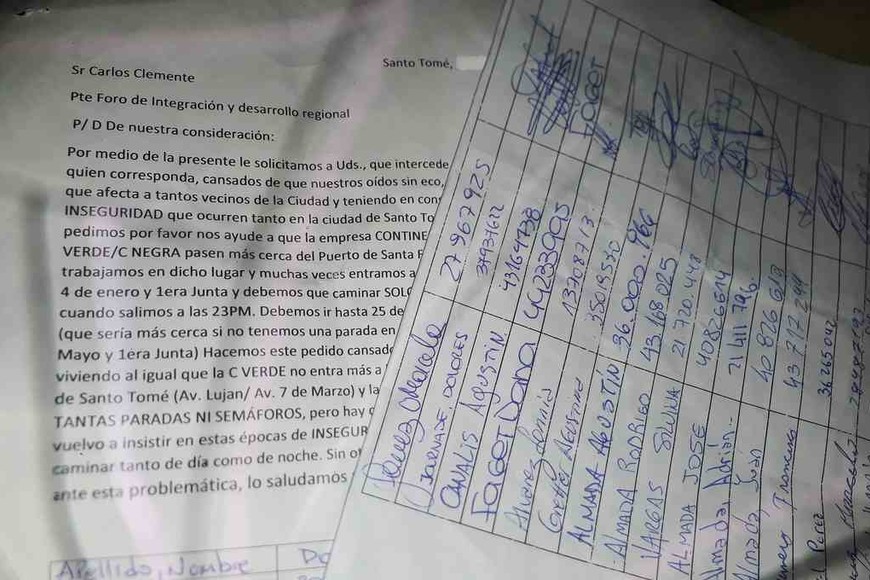 Santo Tomé,
Sr Carlos Clemente
Pte Foro de Integración y desarrollo regional
P/ D De nuestra consideración:
Por medio de la presente le solicitamos a Uds., que intercede
quien corresponda, cansados de que nuestros oídos sin eco,
que afecta a tantos vecinos de la Ciudad y teniendo en con
INSEGURIDAD que ocurren tanto en la ciudad de Santo To
pedimos por favor nos ayude a que la empresa CONTINE
VERDE/C NEGRA pasen más cerca del Puerto de Santa F
trabajamos en dicho lugar y muchas veces entramos a
4 de enero y 1era Junta y debemos que caminar SOL
cuando salimos a las 23PM. Debemos ir hasta 25 de
(que sería más cerca si no tenemos una parada en
Mayo y 1era Junta) Hacemos este pedido cansado
viviendo al igual que la C VERDE no entra más a
de Santo Tomé (Av. Lujan/ Av. 7 de Marzo) y la
TANTAS PARADAS NI SEMÁFOROS, pero hay
vuelvo a insistir en estas épocas de INSEGUR
caminar tanto de día como de noche. Sin ot
ante esta problemática, lo saludamos
Apellido, Nombre
27967925
DORALES 37937622
CANALIS AGUSTIN 43164738
FAGET Dana 44233995 FAGET
13708713
35019530
ALMADA AGUSTÍN 36.000.966
ALMADA RODRIGO 43168025
VARGAS SILVINA 21 720 448
ALMADA JOSE 40826614
Almada, Adrián 21 411 796
Almada, Juan 40 826 613
43 717 244
Perez 36265042
Marcelo